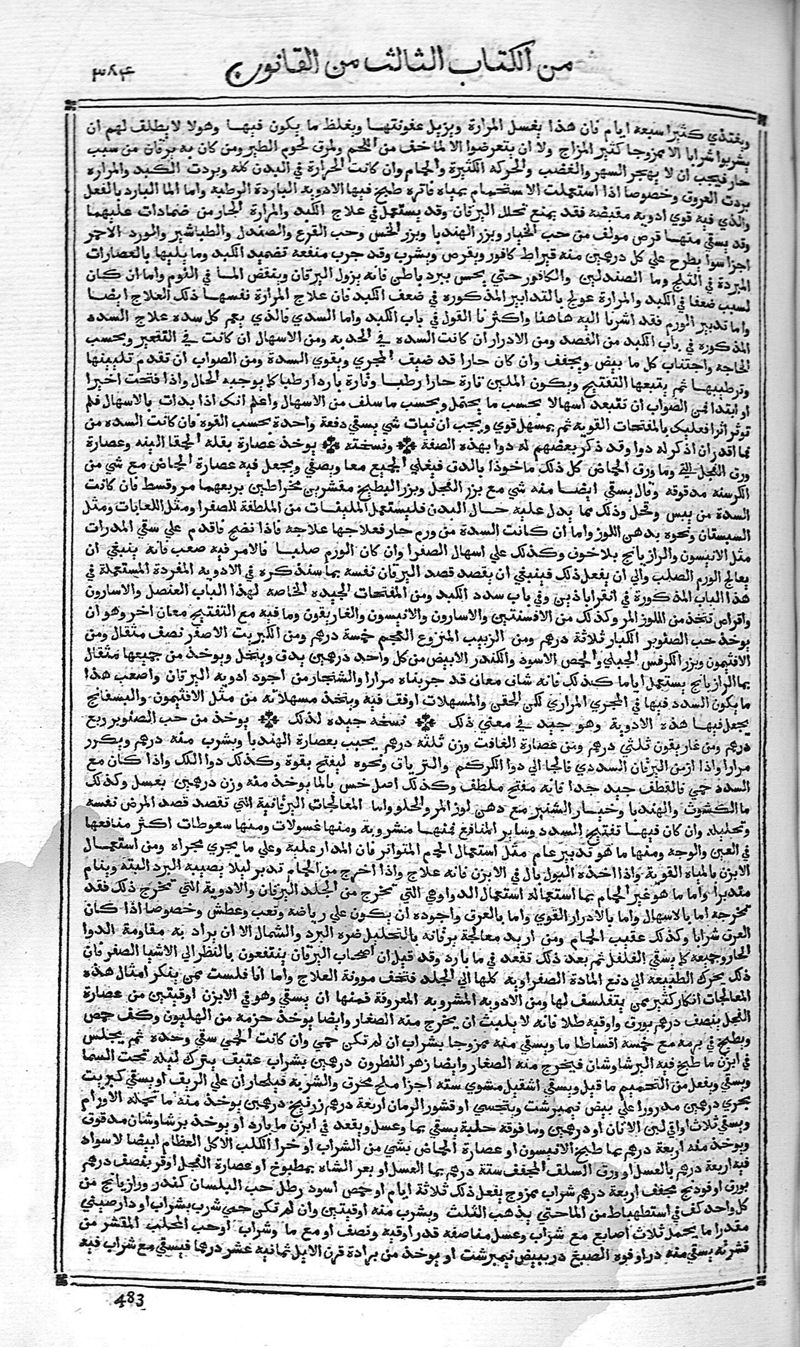 من الكتاب الثالث من القانون
٣٨٤
ويغتذي كثيرا سبعه ايام فان هذا يغسل المرارة ويزيل عفونتها ويغلظ ما يكون فيها وهولا لا يطلق لهم ان
يشربوا شرابا الا ممزوجا كثير المزاج ولا ان يتعرضوا الا لما خف من اللحم ولمرق لحوم الطير ومن كان به يرقان من سبب
حار فيجب ان لا يهجر السهر والغضب والحركه الكثيرة والحمام وان كانت الحرارة في البدن كله وبردت الكبد والمراره
بردت العروق وخصوصا اذا استعملت الاستحمام بمياه فاتره طبخ فيها الادويه الباردة الرطبه واما الما البارد بالفعل
والذي فيه قوي ادويه مقبضه فقد يمنع تحلل اليرقان وقد يستعمل في علاج الكبد والمرارة الحار من ضمادات عليهما
وقد يسقي منها قرص مولف من حب الخيار وبزر الهندبا وبزر الخس وحب القرع والصندل والطباشير والورد الاحمر
اجزا سوا يطرح علي كل درهمين منه قيراط كافور ويقرص ويشرب وقد جرب منفعه تضميد الكبد وما يليها بالعصارات
المبردة في الثلج وما الصندلين والكافور حتي يحس ببرد باطني فانه يزول اليرقان وينغض الما في النوم واما ان كان
لسبب ضعفا في الكبد والمرارة عولج بالتدابير المذكوره في ضعف الكبد فان علاج المرارة نفسها ذلك العلاج ايضا
واما تدبير الورم فقد اشرنا اليه هاهنا واكثرنا القول في باب الكبد واما السدي فالذي يعم كل سده علاج السده
المذكوره في باب الكبد من الفصد ومن الادرار ان كانت السده في الحدبه ومن الاسهال ان كانت في التقعير وبحسب
الحاجه واجتناب كل ما يبيض ويجفف وان كان حارا قد ضيف المجري ويقوي السدة ومن الصواب ان تقدم تليينها
وترطيبها ثم يتبعها التفتيح ويكون الملين تارة حارا رطبا وتارة باردا رطبا كما يوجبه الحال واذا فتحت اخيرا
او ابتدا فمن الصواب ان تتبعه اسهالا بحسب ما يحتمل وبحسب ما سلف من الاسهال واعلم انك اذا بدات بالاسهال فلم
توثر اثرا فعليك بالمفتحات القويه ثم بمسهل قوي ويجب ان نيات شي يسقي دفعة واحدة بحسب القوه فان كانت السده من
مما اقدر ان اذكر له دوا وقد ذكر بعضهم له دوا بهذه الصفة ونسخته يوخذ عصارة بقله الحمقا البنه وعصارة
ورق الفجل وما ورق الحماض كل ذلك ماخوذا بالدق فيغلي الجميع معا ويصفي ويجعل فيه عصارة الحماض مع شي من
الكرسنه مدقوقه وقال يسقي ايضا منه شي مع بزر الفجل وبزر البطيخ مقشرين مخراطين يربعهما مر وقسط فان كانت
السدة من يبس وقحل وذلك مما يدل عليه حال البدن فليستعمل الملينات من الملطفة للصفرا ومثل اللعابات ومثل
السبستان ونحوه بدهن اللوز واما ان كانت السدة من ورم حار فعلاجها علاجه فاذا نضج فاقدم علي سقي المدرات
مثل الانيسون والرازيانج بلا خوف وكذلك علي اسهال الصفرا وان كان الورم صلبا فالامر فيه صعب فانه ينبغي ان
يعالج الورم الصلب والي ان يفعل ذلك فينبغي ان يقصد قصد اليرقان نفسه بما سنذكره في الادويه المفردة المستعملة في
هذا الباب المذكورة في انقراباذين وفي باب سدد الكبد ومن المفتحات الجيده الخاصه لهذا الباب العنصل والاسارون
واقراص تتخذ من اللوز المر وكذلك من الافسنتين والاسارون والانيسون والغاريقون وما فيه مع التفتيح معان اخر وهو ان
يوخذ حب الصنوبر الكبار ثلاثة درهم ومن الزبيب المنزوع العجم خمسة درهم ومن الكبريت الاصفر نصف مثقال ومن
الافتيمون وبزر الكرفس الجبلي والحمص الاسود والكندر الابيض من كل واحد درهمين يدق وينخل ويوخذ من جميعها مثقال
بما الرازيانج يستعمل اياما كذلك فانه شاف معان قد جربناه مرارا والشنجار من اجود ادويه اليرقان واصعب هذا
ما يكون السدد فيها في المجري المراري لكن الحقن والمسهلات اوفق فيه ويتخذ مسهلاته من مثل الافتيمون والبسفانج
يجعل فيها هذه الادوية وهو جيد في معني ذلك نسخه جيده لذلك يوخذ من حب الصنوبر ربع
درهم ومن غاريقون ثلثي درهم ومن عصارة الغافت وزن ثلثه درهم يحبب بعصارة الهندبا ويشرب منه درهم ويكرر
مرارا واذا ازمن اليرقان السددي فالجا الي دوا الكركم والترياق ونحوه ليفتح بقوة وكذلك دوا اللك واذا كان مع
السدد حمي فالقطف جيد جدا فانه مفتح ملطف وكذلك اصل خس بالما يوخذ منه وزن درهمين بعسل وكذلك
ما الكشوث والهندبا وخيار الشنبر مع دهن لوز المر والحلو واما المعالجات اليرقانية التي تقصد قصد المرض نفسه
وتحليله وان كان فيها تفتيح السدد وساير المنافع فمنها مشروبه ومنها غسولات ومنها سعوطات اكثر منافعها
في العين والوجه ومنها ما هو تدبير عام مثل استعمال الحمام المتواتر فان المدار عليه وعلي ما يجري مجراه ومن استعمال
الابزن بالمياه القوية واذا اخذه البول بال في الابزن فانه علاج واذا اخرج من الحمام تدبر ليلا يصيبه البرد البته وينام
مقدبرا واما ما هو غير الحمام بما استعماله استعمال الدواوهي التي تخرج من الجلد اليرقان والادوية التي تخرج ذلك فقد
تخرجه اما بالاسهال واما بالادرار القوي واما بالعرق واجوده ان يكون علي رياضه وتعب وعطش وخصوصا اذا كان
العرق شرابا وكذلك عقيب الحمام ومن اريد معالجة يرقانه بالتحليل ضره البرد والشمال الا ان يراد به مقاومة الدوا
الحار وجميعه كما يسقي الفلفل ثم بعد ذلك تقعد في ما بارد وقد قيل ان اصحاب اليرقان ينتفعون بالنظر الي الاشيا الصفر فان
ذلك يحرك الطبيعه الي دفع المادة الصفراويه كلها الي الجلد فتخف موونة العلاج واما انا فلست ممن ينكر امثال هذه
المعالجات انكار كثير ممن يتفلسف لها ومن الادويه المشروبه المعروفة فمنها ان يسقي وهو في الابزن اوقيتين من عصارة
الفجل بنصف درهم بورق واوقيه طلا فانه لا يلبث ان يخرج منه الصفار وايضا يوخذ حزمه من الهليون وكف حمص
ويطبخ في برمه مع خمسة اقساط ما ويسقي منه ممزوجا بشراب ان لم تكن حمي وان كانت الحمي سقي وحده ثم يجلس
في ابزن ما طبخ فيه البرشاوشان فيخرج منه الصفار وايضا زهر النطرون درهمين بشراب عتيق يترك ليله تحت السما
ويسقي ويفعل من التحميم ما قيل ويسقي اشقيل مشوي سته اجزا ملح محرق والشربه فيلجاران علي الريق او يسقي كبريت
بحري درهمين مدرورا علي بيض نيمبرشت ويتحسي او قشور الرمان اربعة درهم زرنيخ درهمين يوخذ منه ما تحمله الاورام
ويسقي ثلاث اواقي لبن الاتان او درهمين وما فوقه حلبة يسقي بما وعسل ويقعد في ابزن ما بارد او يوخذ برشاوشان مدقوق
ويوخذ منه اربعة درهم بما طبيخ الانيسون او عصارة الحماض بشي من الشراب او خرا الكلب الاكل العظام ابيضا لا سواد
فيه اربعة درهم بالعسل او ورق السلف المجفف ستة درهم بما العسل او بعر الشاه بمطبوخ او عصارة الفجل اوقر بنصف درهم
بورق او فودنج مجفف اربعة درهم شراب ممزوج يفعل ذلك ثلاثة ايام او حمص اسود رطل حب البلسان كندر ورازيانج من
كل واحد كف في اسنطهياط من الما حتي يذهب الثلث ويشرب منه اوقيتين وان لم تكن حمي شرب بشراب او دارصيني
مقدرا ما يحمل ثلاث اصابع مع شراب وعسل مناصفه قدر اوقيه ونصف او مع ما وشراب اوحب المحلب المقشر من
قشرته يسقي منه دراوقوه الصبغ در بيض نيمبرشت او يوخذ من برادة قرن الايل ثمانيه عشر درهما فيسقي مع شراب فيه
483